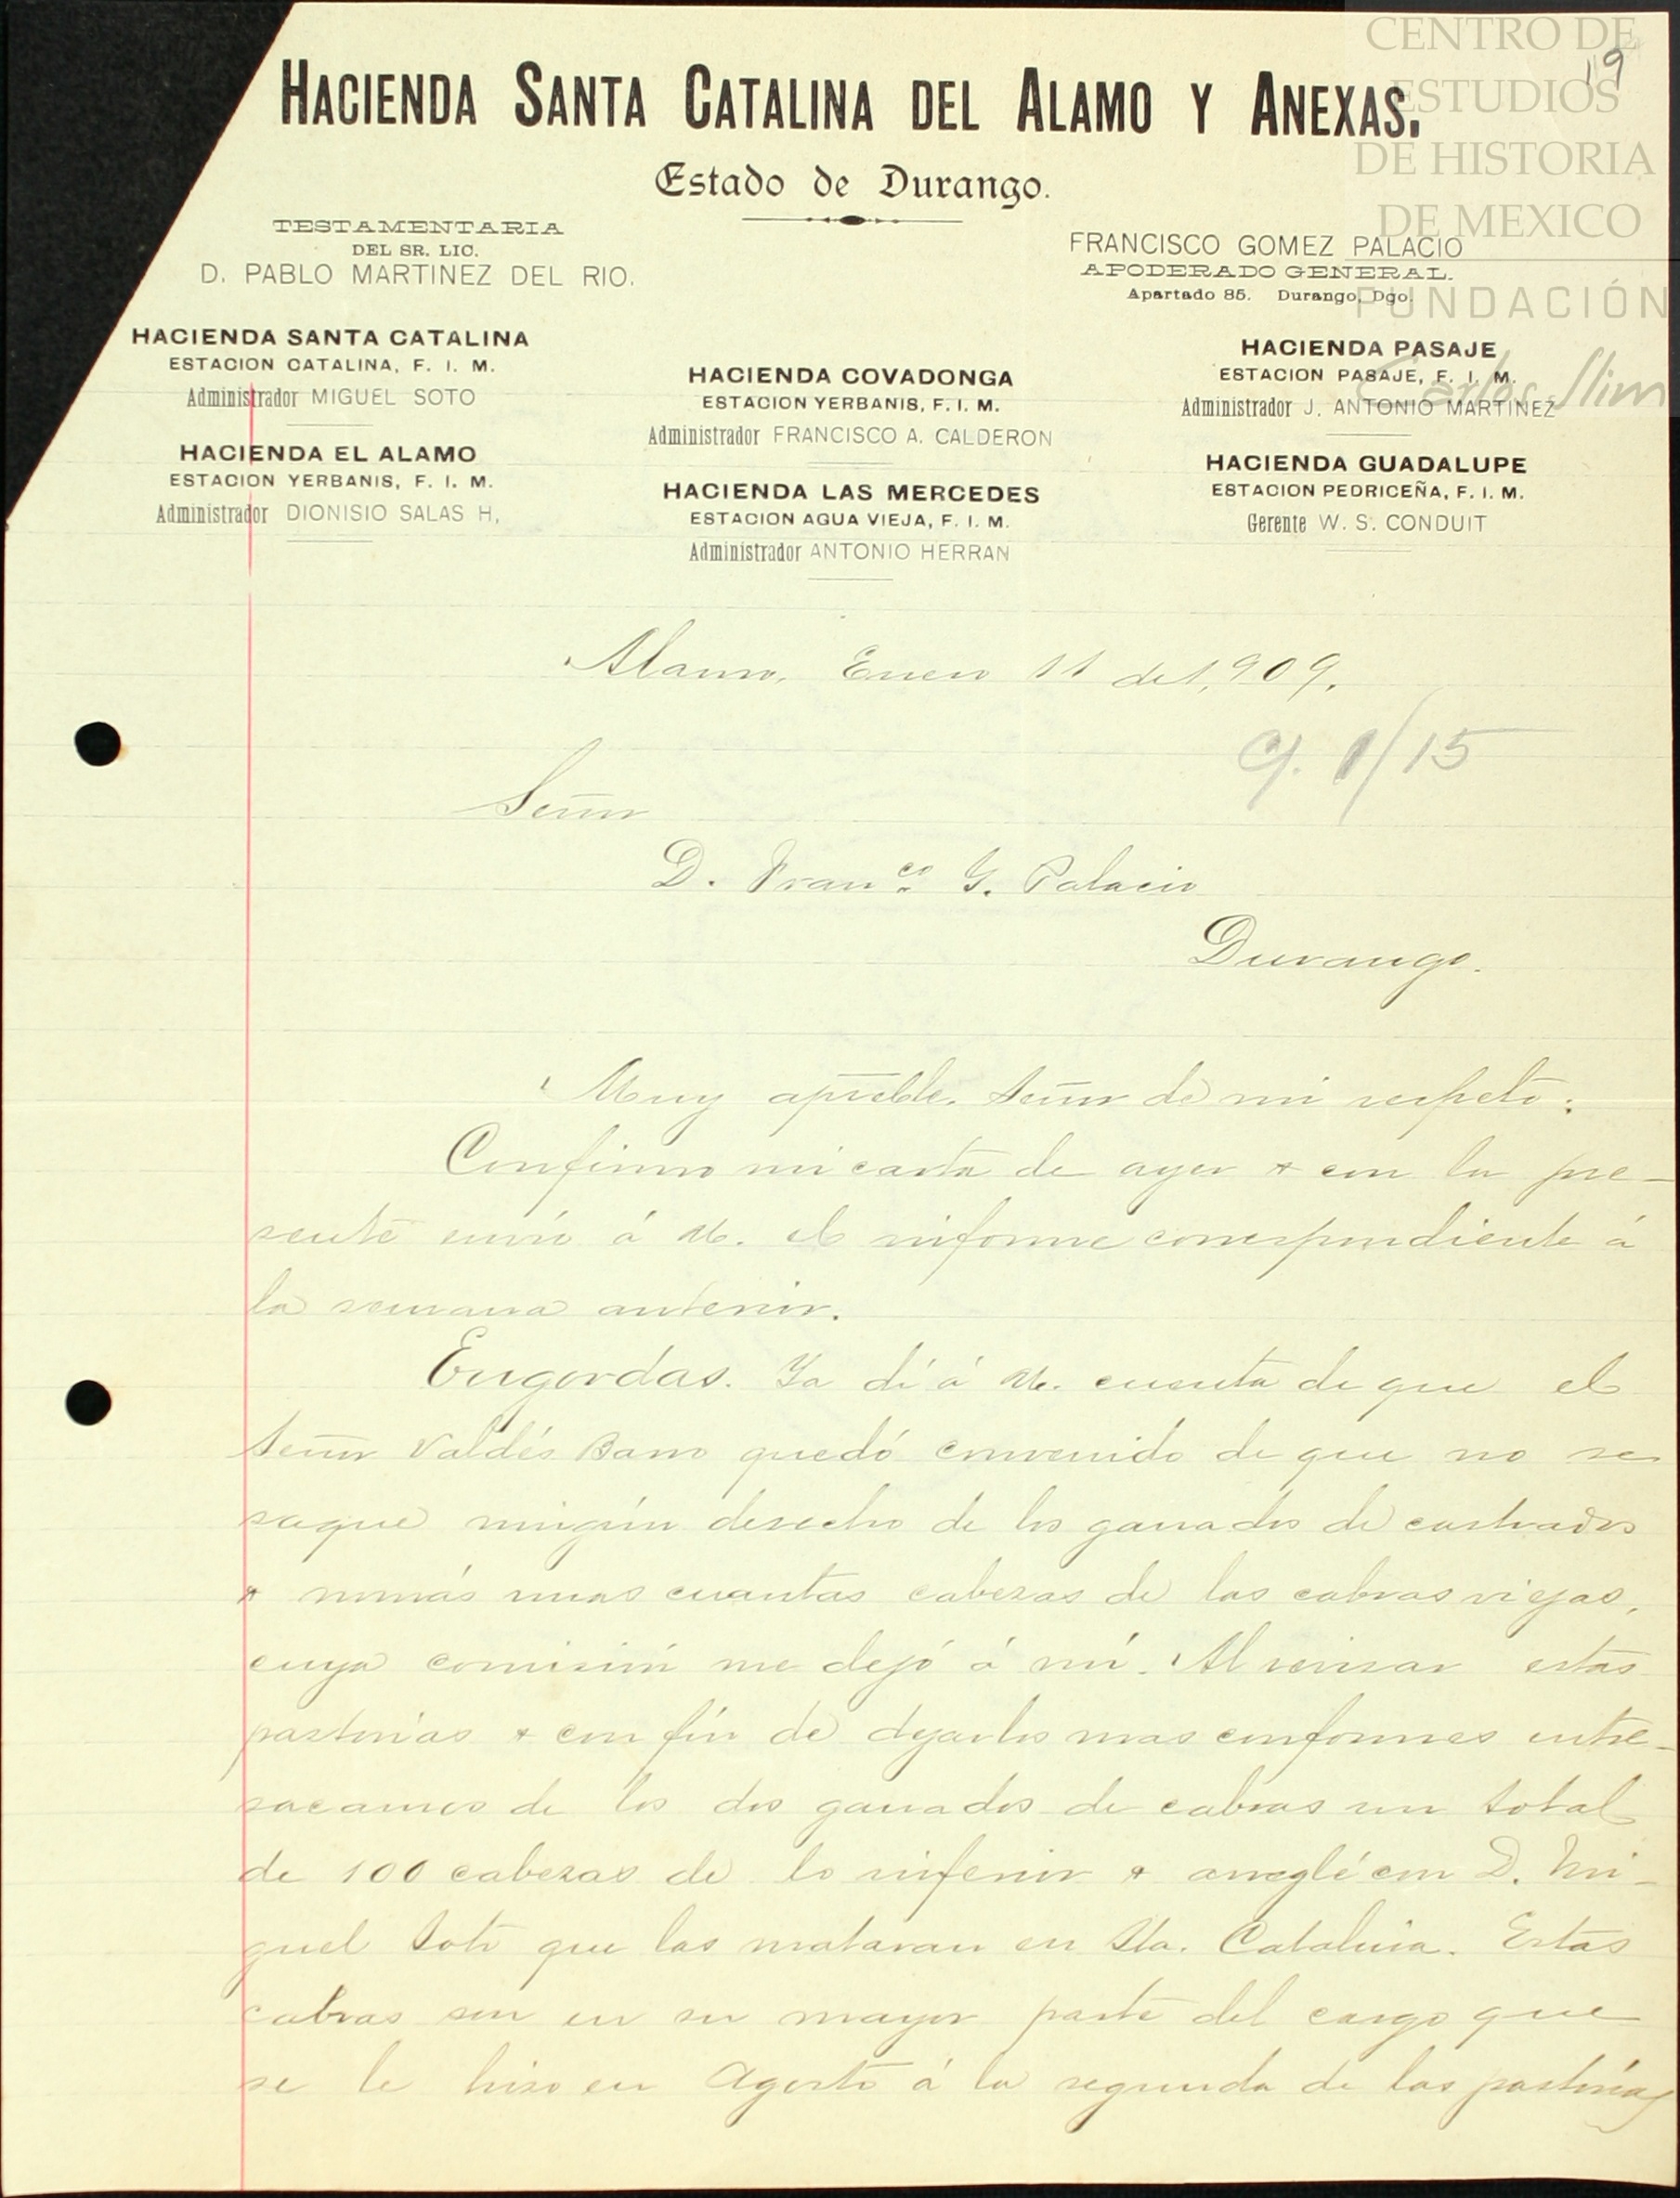 CENTRO DE
ESTUDIOS
DE HISTORIA
DE MEXICO
FUNDACIÓN
Carlos Slim
19
HACIENDA SANTA CATALINA DEL ALAMO Y ANEXAS.
Estado de Durango.
TESTAMENTARIA
DEL SR. LIC.
D. PABLO MARTINEZ DEL RIO.
FRANCISCO GOMEZ PALACIO
APODERADO GENERAL.
Apartado 85. Durango, Dgo.
HACIENDA SANTA CATALINA
ESTACION CATALINA, F. I. M.
Administrador MIGUEL SOTO
HACIENDA EL ALAMO
ESTACION YERBANIS, F. I. M.
Administrador DIONISIO SALAS H.
HACIENDA COVADONGA
ESTACION YERBANIS, F. I. M.
Administrador FRANCISCO A. CALDERON
HACIENDA LAS MERCEDES
ESTACION AGUA VIEJA, F. I. M.
Administrador ANTONIO HERRAN
HACIENDA PASAJE
ESTACION PASAJE, F. I. M.
Administrador J. ANTONIO MARTINEZ
HACIENDA GUADALUPE
ESTACION PEDRICEÑA, F. I. M.
Gerente W. S. CONDUIT
Alamo, Enero 11 de 1,909.
C/. 1/15
Señor
D. Franco. G. Palacio
Durango.
Muy apreble. Señor de mi respeto:
Confirmo mi carta de ayer & con la pre-
sente envío á U. el informe correspondiente á
la semana anterior.
Engordas. Ya dí á U. cuenta de que el
Señor Valdés Barro quedó convenido de que no se
saque ningún desecho de los ganados de castrados
& nomás unas cuantas cabezas de las cabras viejas,
cuya comisión me dejó á mí. Al revisar estas
pastorías & con fín de dejarlos mas conformes entre-
sacamos de los dos ganados de cabras un total
de 100 cabezas de lo inferior & arreglé con D. Mi-
guel Soto que las mataran en Sta. Catalina. Estas
cabras son en su mayor parte del cargo que
se le hizo en Agosto á la segunda de las pastorías